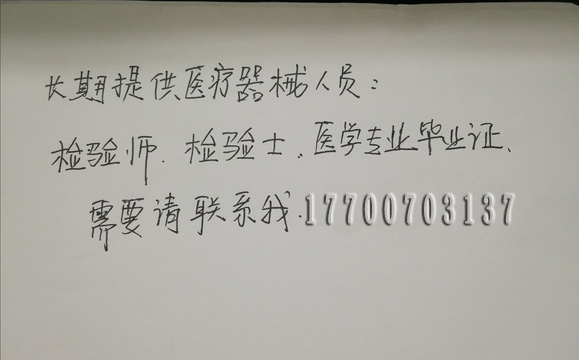 长期提供医疗器械人员：
检验师、检验士、医学专业毕业证、
需要请联系我.17700703137